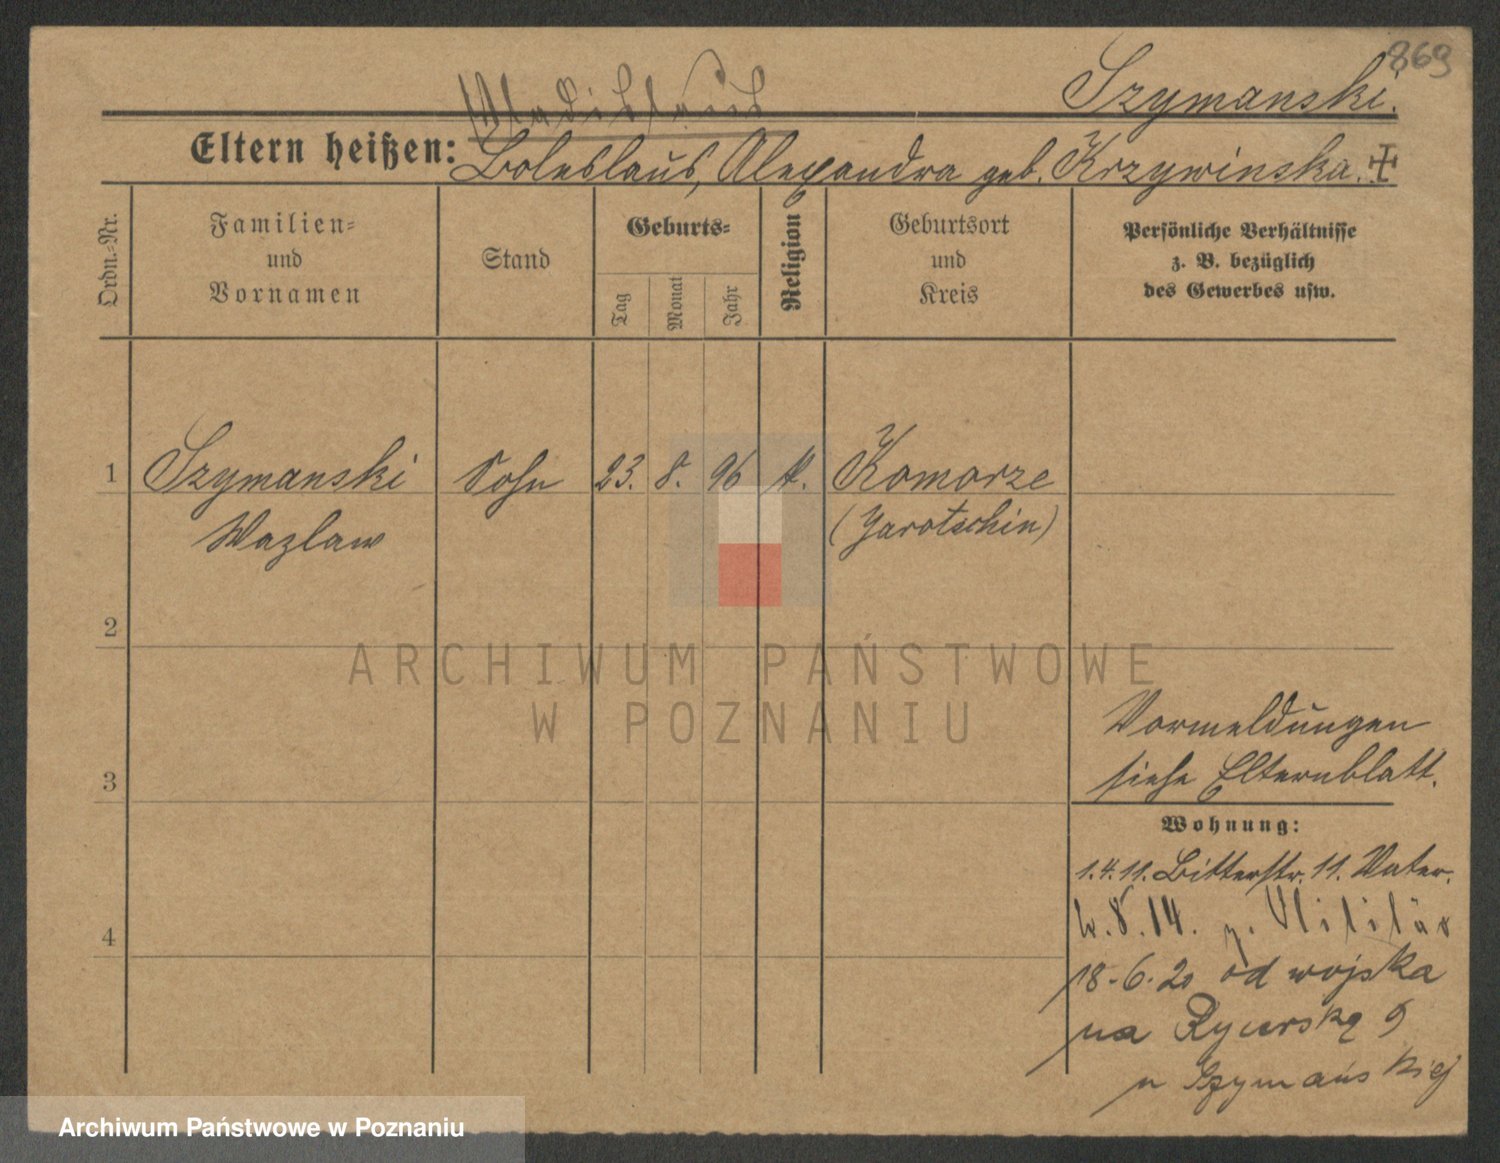 869
Szymanski.
Wladislaus
Eltern heißen: Boleslaus, Alexandra geb. Krzywinska.
Ordn.-Nr.
Familien-
und
Vornamen
Stand
Geburts-
Tag
Monat
Jahr
Religion
Geburtsort
und
Kreis
Persönliche Verhältnisse
z. B. bezüglich
des Gewerbes usw.
1 Szymanski Sohn 23. 8. 96 k. Komorze
Wazlaw (Jarotschin)
2
3
4
Vormeldungen
siehe Elternblatt.
Wohnung:
1.4.11. Bitterstr. 11. Vater.
8.14. z. Militär
18.6.20 od wojska
na Rycerską 9
u Szymańskiej
ARCHIWUM PAŃSTWOWE
W POZNANIU
Archiwum Państwowe w Poznaniu